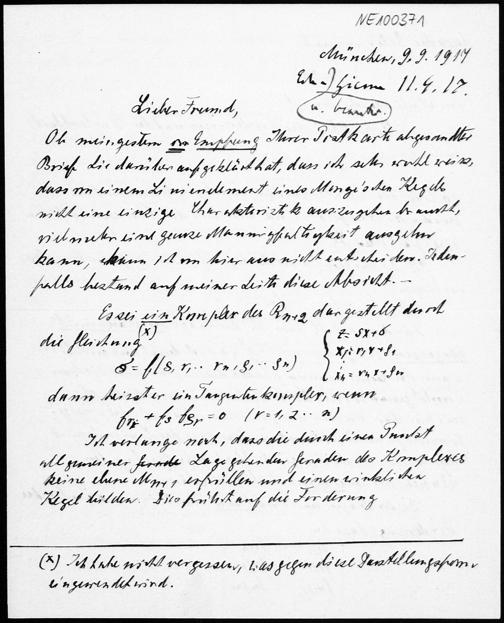 NE100371
München, 9.9.1917
11.4.17.
u. beantw.
Lieber Freund,
Ob mein gestern vor Empfang Ihrer Postkarte abgesandter
Brief Sie darüber aufgeklärt hat, dass ich sehr wohl weiss,
dass von einem Linienelement eines Monge'schen Kegels
nicht eine einzige Charakteristik auszugehen braucht,
vielmehr eine ganze Mannigfaltigkeit ausgehn
kann, kann ich von hier aus nicht entscheiden. Jeden-
falls bestand auf meiner Seite diese Absicht. —
Es sei ein Komplex des R_{n+2} dargestellt durch
die Gleichung (x)
σ = f(s, r₁ ·· rₙ, ρ₁ ·· ρₙ) { z = sx+σ
x₁ = r₁x+ρ₁
xₙ = rₙx+ρₙ
dann heisst er ein Tangentenkomplex, wenn
(ν = 1, 2 ·· n)
Ich verlange noch, dass die durch einen Punkt
allgemeiner Lage gehenden Geraden des Komplexes
keine ebene M_{n+1} erfüllen und einen wirklichen
Kegel bilden. Dies führt auf die Forderung
(x) Ich habe nicht vergessen, was gegen diese Darstellungsform
eingewendet wird.